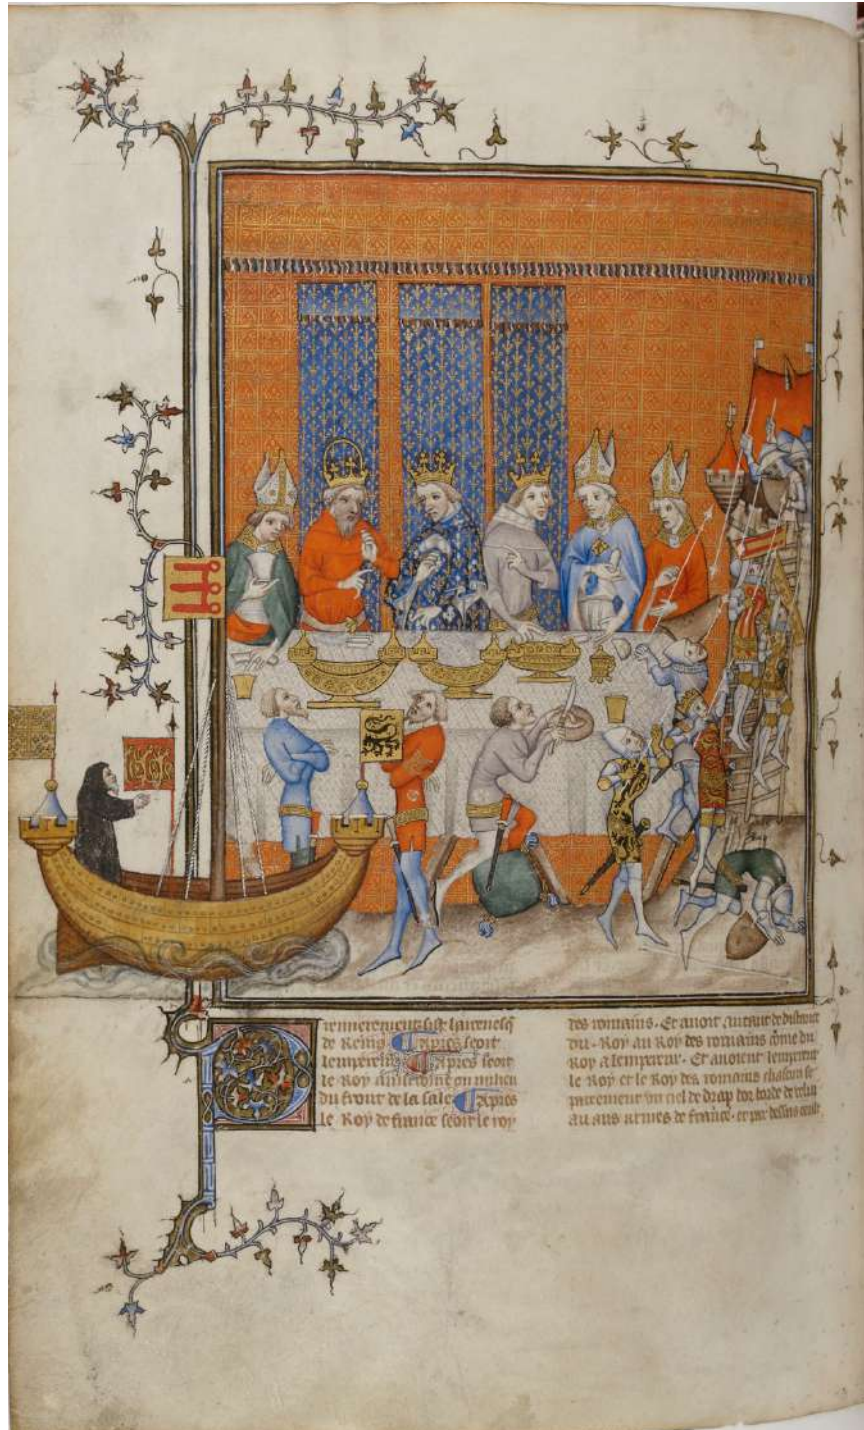 remierement sist larcevesq
de Reins Apres seoit
lempereur Apres seoit
le Roy
du front de la sale Apres
le Roy de france seoit le roy
des romains. Et avoit autant de distance
du Roy au Roy des romains cõme du
Roy a lempereur. Et avoient lempereur
le Roy et le Roy des romains chascun se
parement un ciel de drap dor borde de veluiau
au aus armes de france. et par dessus